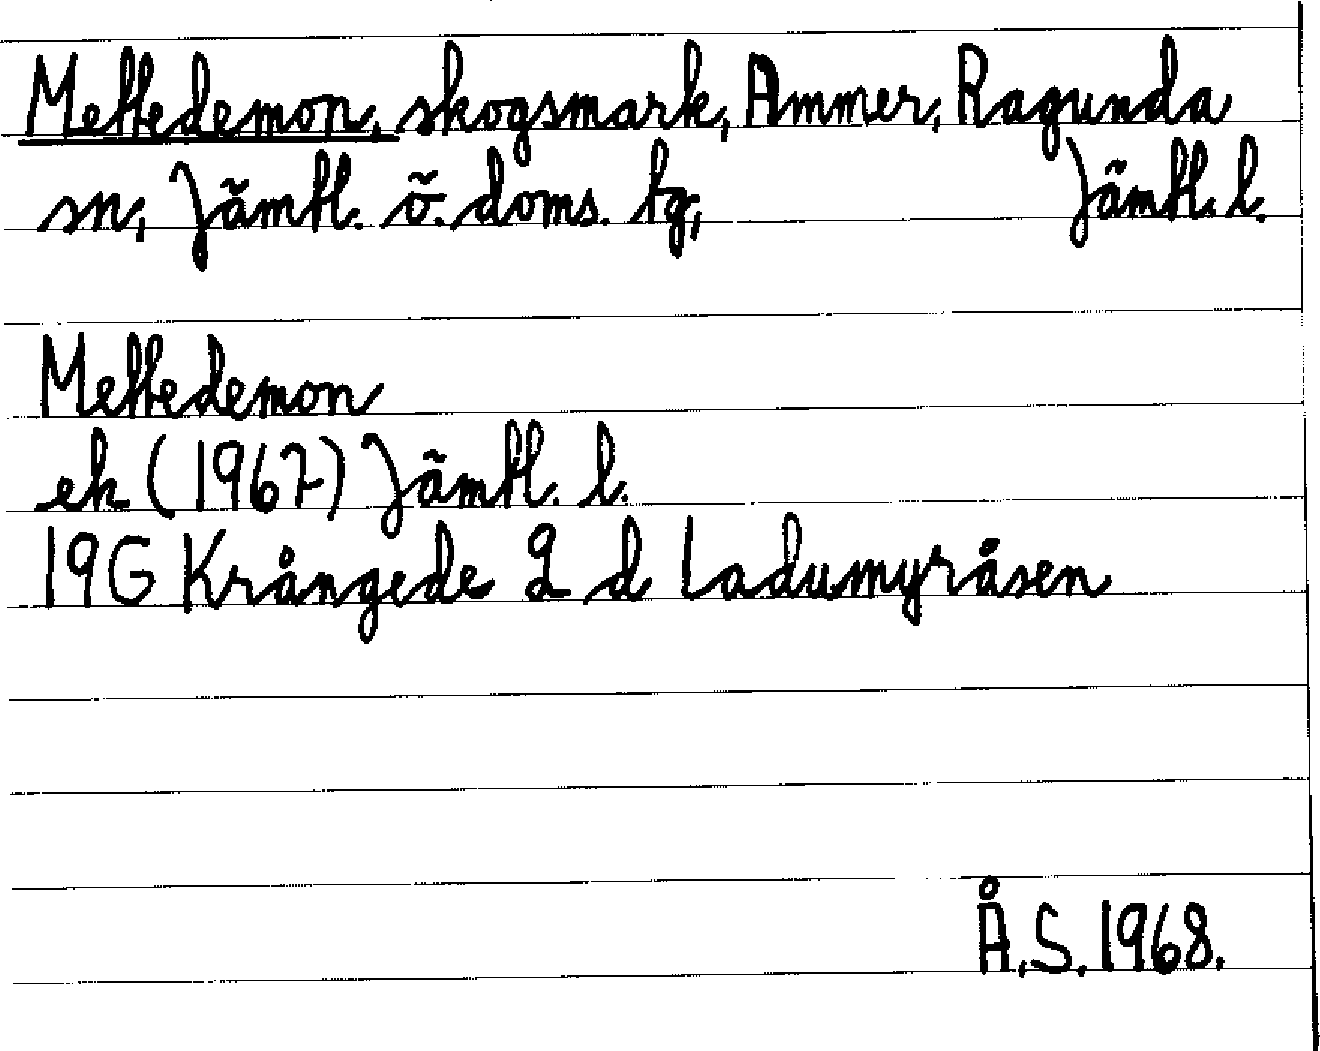 Mettedemon, skogsmark, Ammer, Ragunda
sn, Jämtl. ö. doms. tg, Jämtl. l.
Mettedemon
ek (1967) Jämtl. l.
19G Krångede 2 d Ladumyråsen
Å.S. 1968.